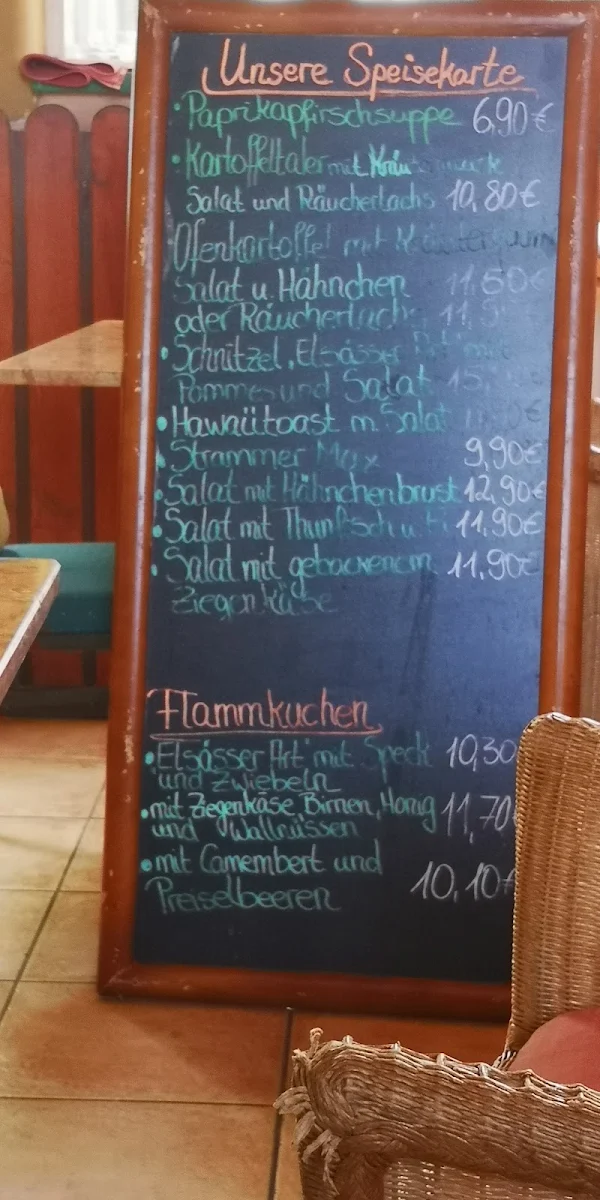 Unsere Speisekarte
• Paprikapfirschsuppe 6,90€
• Kartoffeltaler mit
Salat und Räucherlachs 10,80€
Ofenkartoffel mit
Salat u. Hähnchen
oder Räucherlachs
• Schnitzel „Elsässer
Pommes und Salat
• Hawaiitoast m. Salat
• Strammer Max 9,90€
• Salat mit Hähnchenbrust 12,90€
• Salat mit Thunfisch u. 11,90€
• Salat mit gebackenem 11,90€
Ziegenkäse
Flammkuchen
• "Elsässer Art" mit Speck 10,30
und Zwiebeln
• mit Ziegenkäse Birnen, Honig 11,70
und Wallnüssen
• mit Camembert und
Preiselbeeren 10,10€